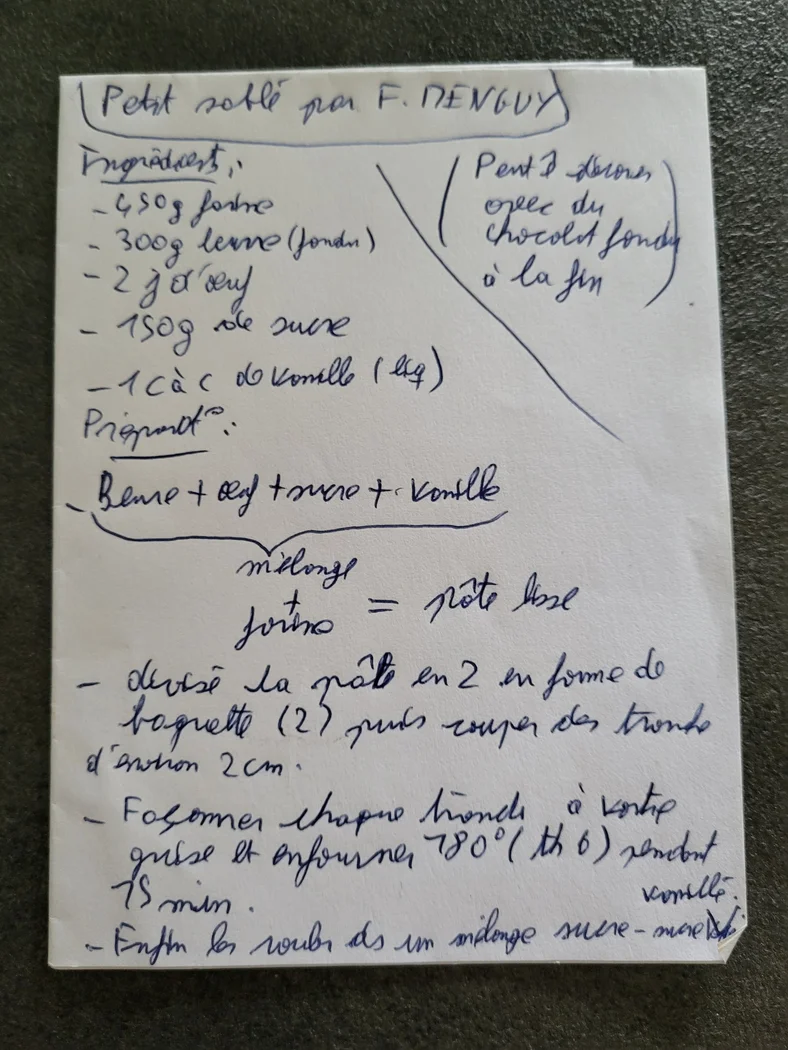 Petit sablé par F. MENGUY
Ingrédients :
- 450g farine
- 300g beurre (fondu)
- 2 j d'œuf
- 150g de sucre
- 1 c à c de vanille (liq)
(Peut décorer
avec du
chocolat fondu
à la fin)
Préparat° :
- Beurre + œuf + sucre + vanille
mélange
+
farine = pâte lisse
- divisé la pâte en 2 en forme de
baguette (2) puis couper des tronde
d'environ 2 cm.
- Façonner chaque tronde à vortre
guise et enfourner 180° (th 6) pendant
15 min.
- Enfin les rouler ds un mélange sucre - sucre vanillé.